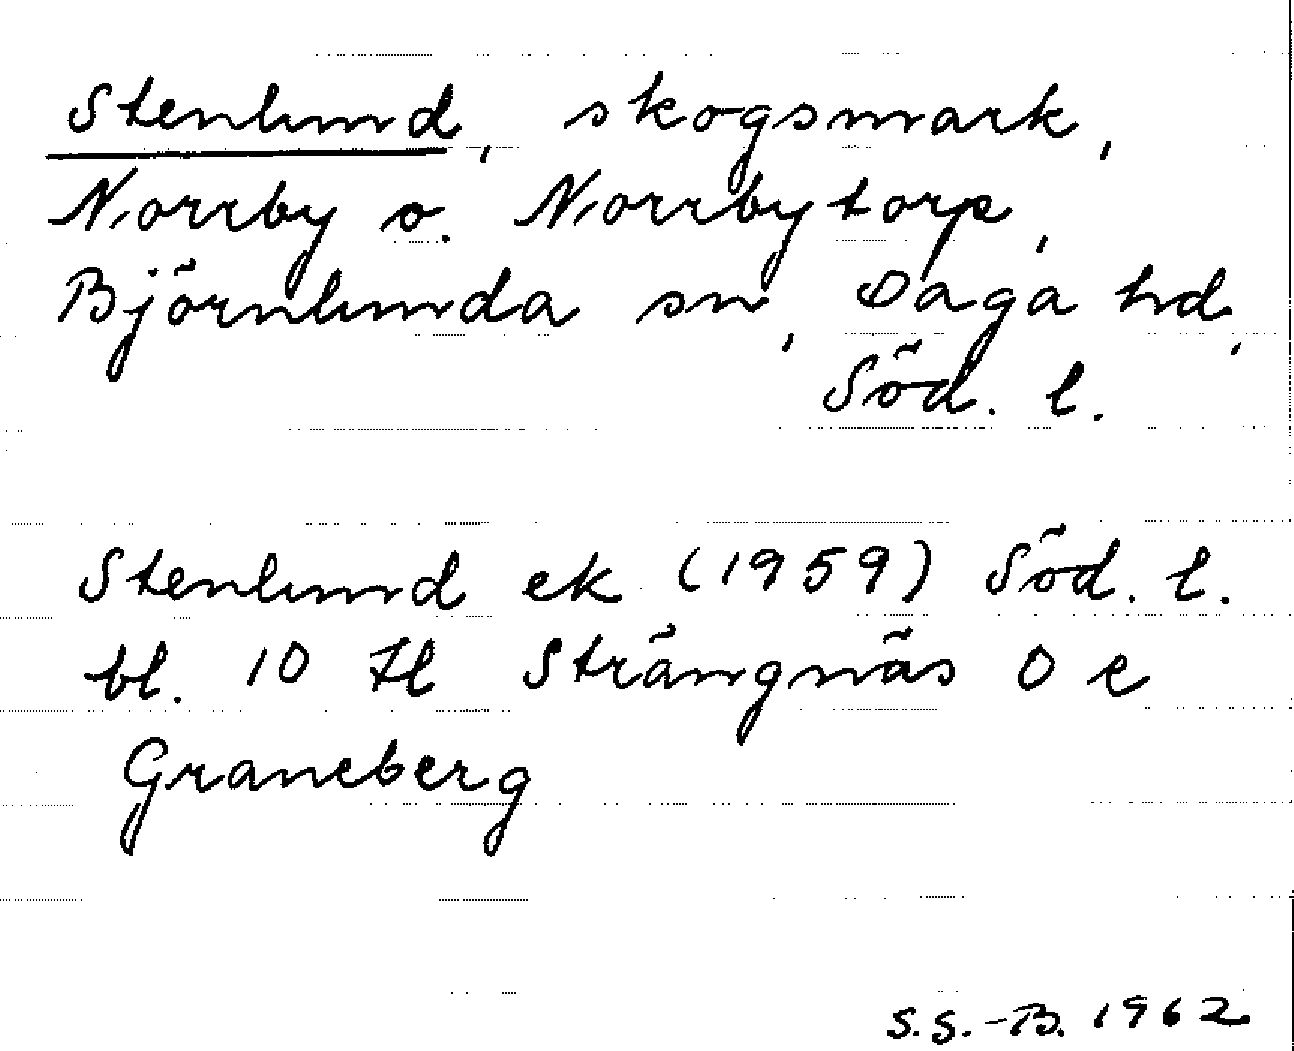 Stenlund, skogsmark,
Norrby o. Norrbytorp,
Björnlunda sn, Daga hd,
Söd. l.
Stenlund ek (1959) Söd. l.
bl. 10 H Strängnäs O e
Graneberg
S.G.-B. 1962